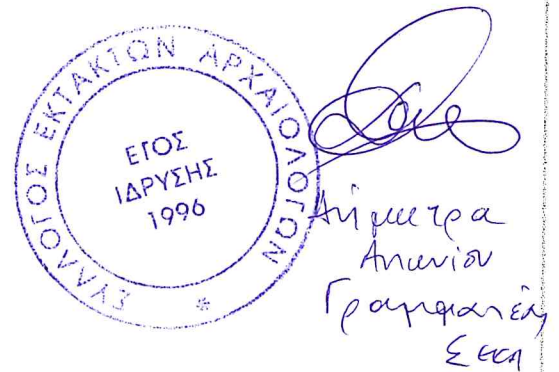 ΣΥΛΛΟΓΟΣ ΕΚΤΑΚΤΩΝ ΑΡΧΑΙΟΛΟΓΩΝ
ΕΤΟΣ
ΙΔΡΥΣΗΣ
1996
Δήμητρα
Γραμματέας
ΣΕΚΑ